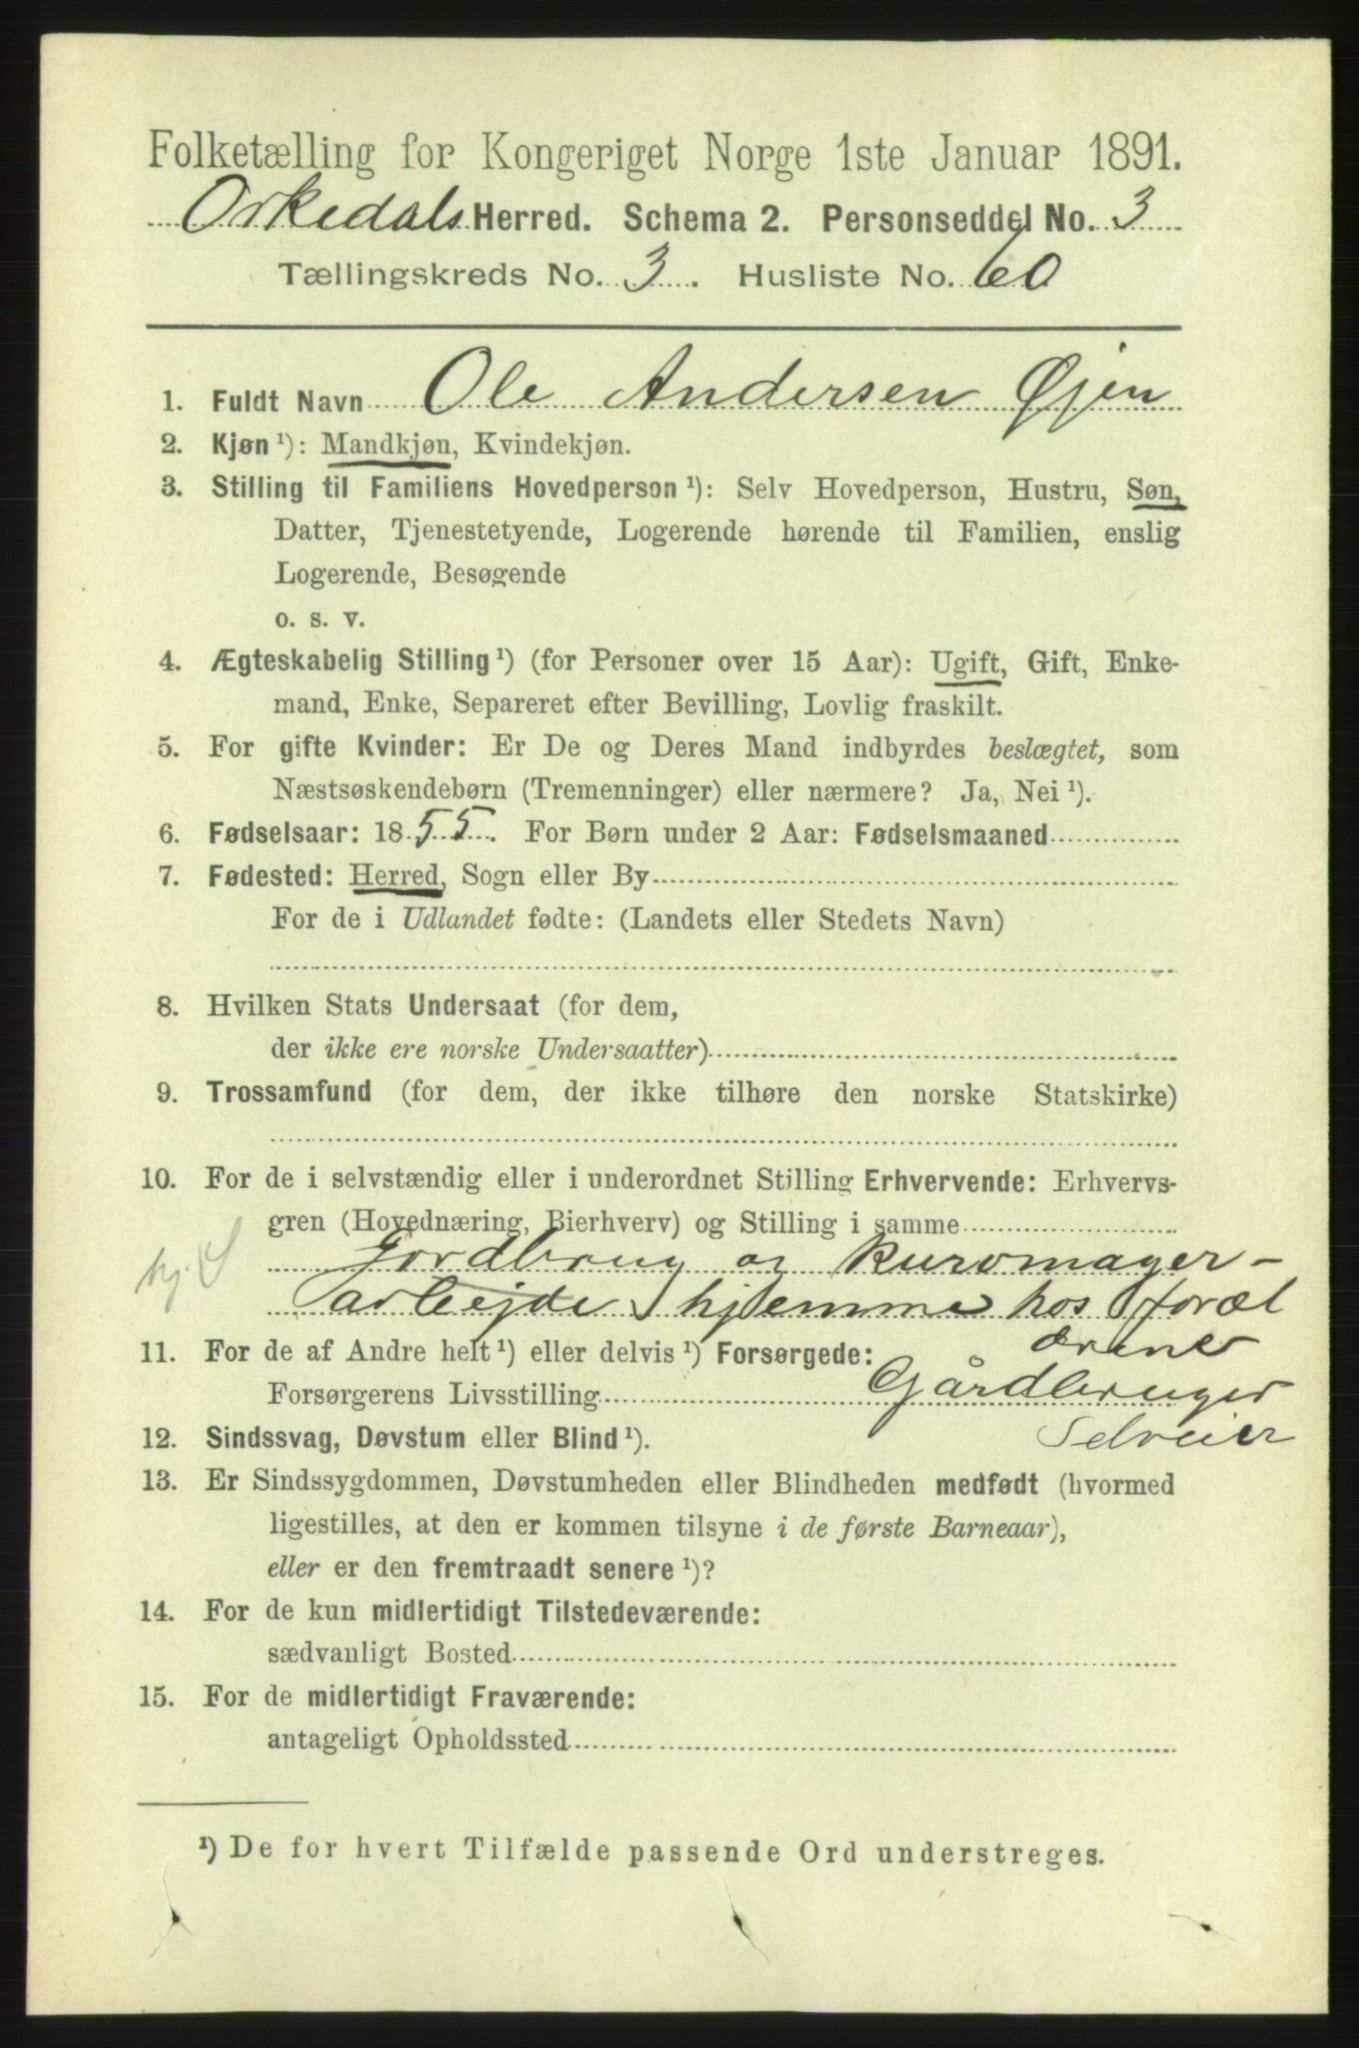 Folketælling for Kongeriget Norge 1ste Januar 1891.
Orkedals Herred. Schema 2. Personseddel No. 3
Tællingskreds No. 3. Husliste No. 60
1. Fuldt Navn Ole Andersen Øjen
2. Kjøn ¹): Mandkjøn, Kvindekjøn.
3. Stilling til Familiens Hovedperson ¹): Selv Hovedperson, Hustru, Søn,
Datter, Tjenestetyende, Logerende hørende til Familien, enslig
Logerende, Besøgende
o. s. v.
4. Ægteskabelig Stilling ¹) (for Personer over 15 Aar): Ugift, Gift, Enke-
mand, Enke, Separeret efter Bevilling, Lovlig fraskilt.
5. For gifte Kvinder: Er De og Deres Mand indbyrdes beslægtet, som
Næstsøskendebørn (Tremenninger) eller nærmere? Ja, Nei ¹).
6. Fødselsaar: 1855. For Børn under 2 Aar: Fødselsmaaned
7. Fødested: Herred, Sogn eller By
For de i Udlandet fødte: (Landets eller Stedets Navn)
8. Hvilken Stats Undersaat (for dem,
der ikke ere norske Undersaatter)
9. Trossamfund (for dem, der ikke tilhøre den norske Statskirke)
10. For de i selvstændig eller i underordnet Stilling Erhvervende: Erhvervs-
gren (Hovednæring, Bierhverv) og Stilling i samme
hj. S Jordbrug og kurvmager-
arbejde hjemme hos foræl
11. For de af Andre helt ¹) eller delvis ¹) Forsørgede: drene
Forsørgerens Livsstilling Gårdbruger
12. Sindssvag, Døvstum eller Blind ¹). Selveier
13. Er Sindssygdommen, Døvstumheden eller Blindheden medfødt (hvormed
ligestilles, at den er kommen tilsyne i de første Barneaar),
eller er den fremtraadt senere ¹)?
14. For de kun midlertidigt Tilstedeværende:
sædvanligt Bosted
15. For de midlertidigt Fraværende:
antageligt Opholdssted
¹) De for hvert Tilfælde passende Ord understreges.